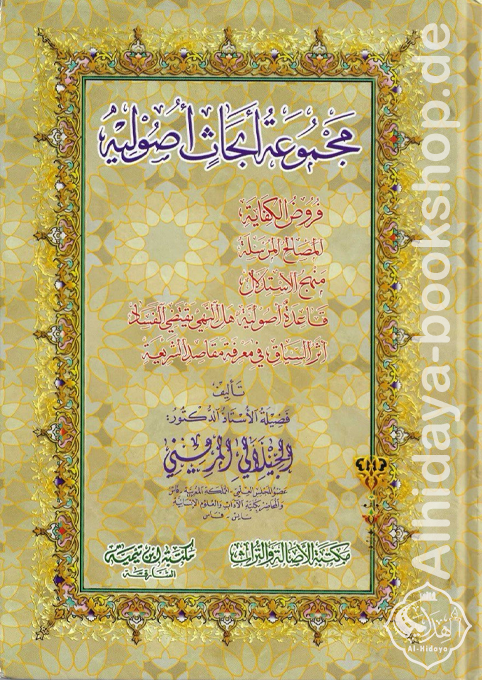 مجموعة أبحاث أصولية
فروض الكفاية
المصالح المرسلة
منهج الاستدلال
قاعدة أصولية: هل النهي يقتضي الفساد
أثر السياق في معرفة مقاصد الشريعة
تأليف
فضيلة الأستاذ الدكتور:
الجيلالي المريني
عضو المجلس العلمي - المملكة المغربية - فاس
والمحاضر بكلية الآداب والعلوم الإنسانية
سايس - فاس
مكتبة الأصالة والتراث
مكتبة ابن تيمية
الشارقة
Alhidaya-bookshop.de
الهداية
Al-Hidaya